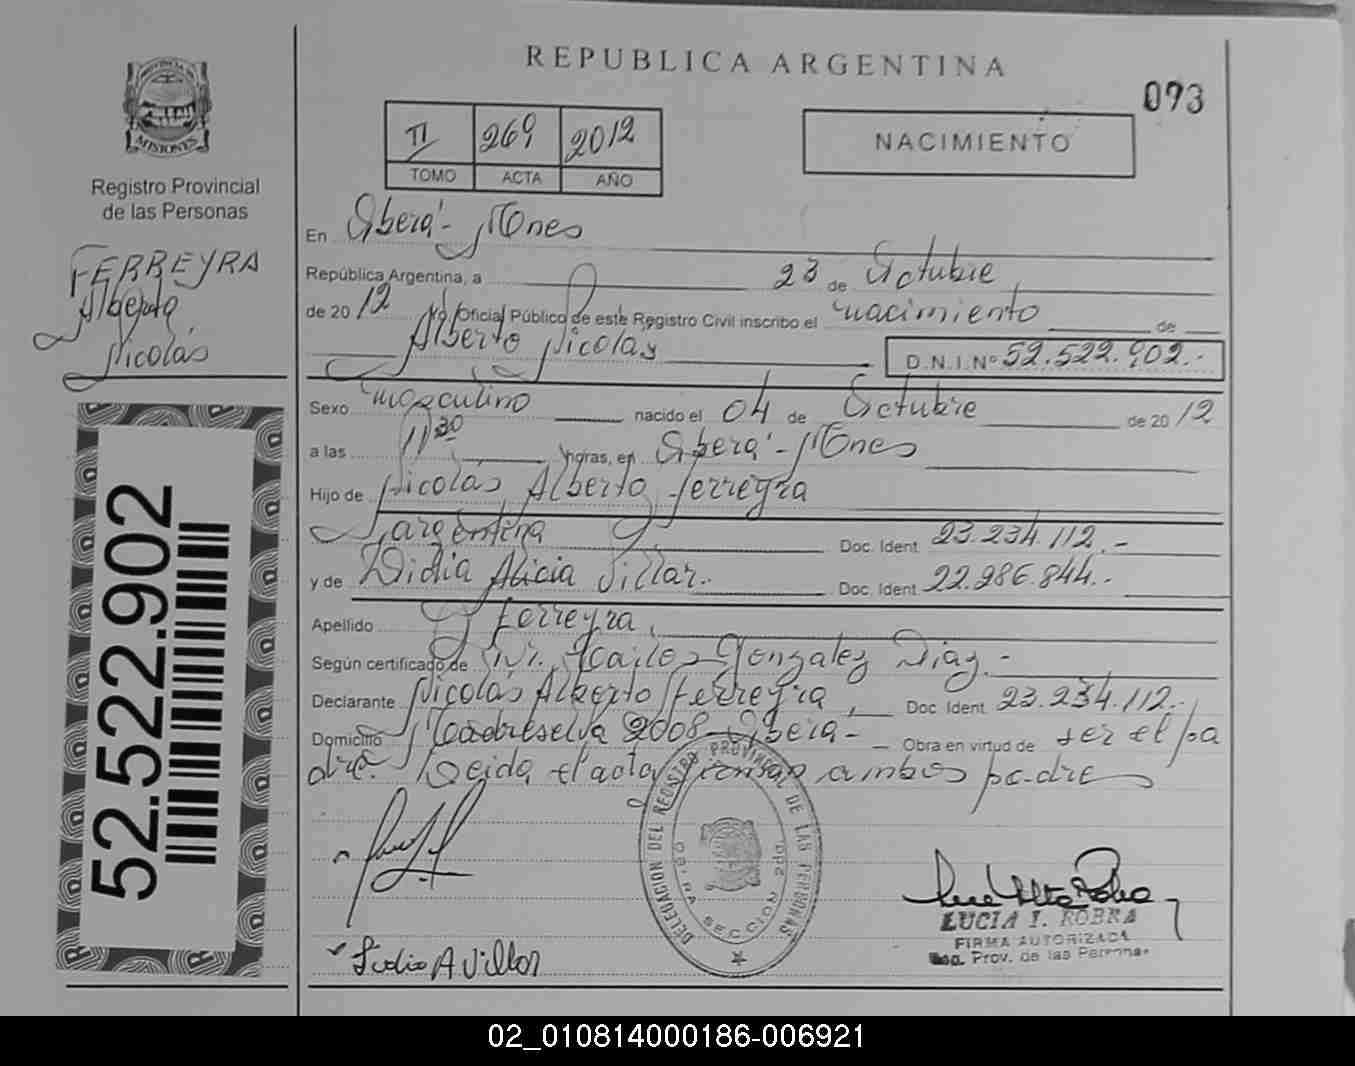 REPUBLICA ARGENTINA
093
PROVINCIA DE
MISIONES
Registro Provincial
de las Personas
FERREYRA
Alberto
Nicolás
52.522.902
II 269 2012
TOMO ACTA AÑO
NACIMIENTO
En Oberá - Mnes
República Argentina, a 23 de Octubre
de 2012 Yo Oficial Público de este Registro Civil inscribo el nacimiento de
Alberto Nicolás D.N.I.Nº 52.522.902.-
Sexo masculino nacido el 04 de Octubre de 2012
a las 11 30 horas, en Oberá - Mnes
Hijo de Nicolás Alberto Ferreyra
argentina Doc. Ident 23.234.112.-
y de Alicia Villar. Doc. Ident. 22.986.844.-
Apellido Ferreyra
Según certificado de Dr. Carlos Gonzalez Diaz.-
Declarante Nicolás Alberto Ferreyra, Doc Ident. 23.234.112.-
Domicilio Madreselva 2008 - Oberá - Obra en virtud de ser el pa
dre. Leida el acta firman ambos padres
DELEGACION DEL REGISTRO PROVINCIAL DE LAS PERSONAS
OBERA SECCION 2da.
A Villar
LUCIA I. ROBKA
FIRMA AUTORIZADA
Reg. Prov. de las Personas
02_010814000186-006921